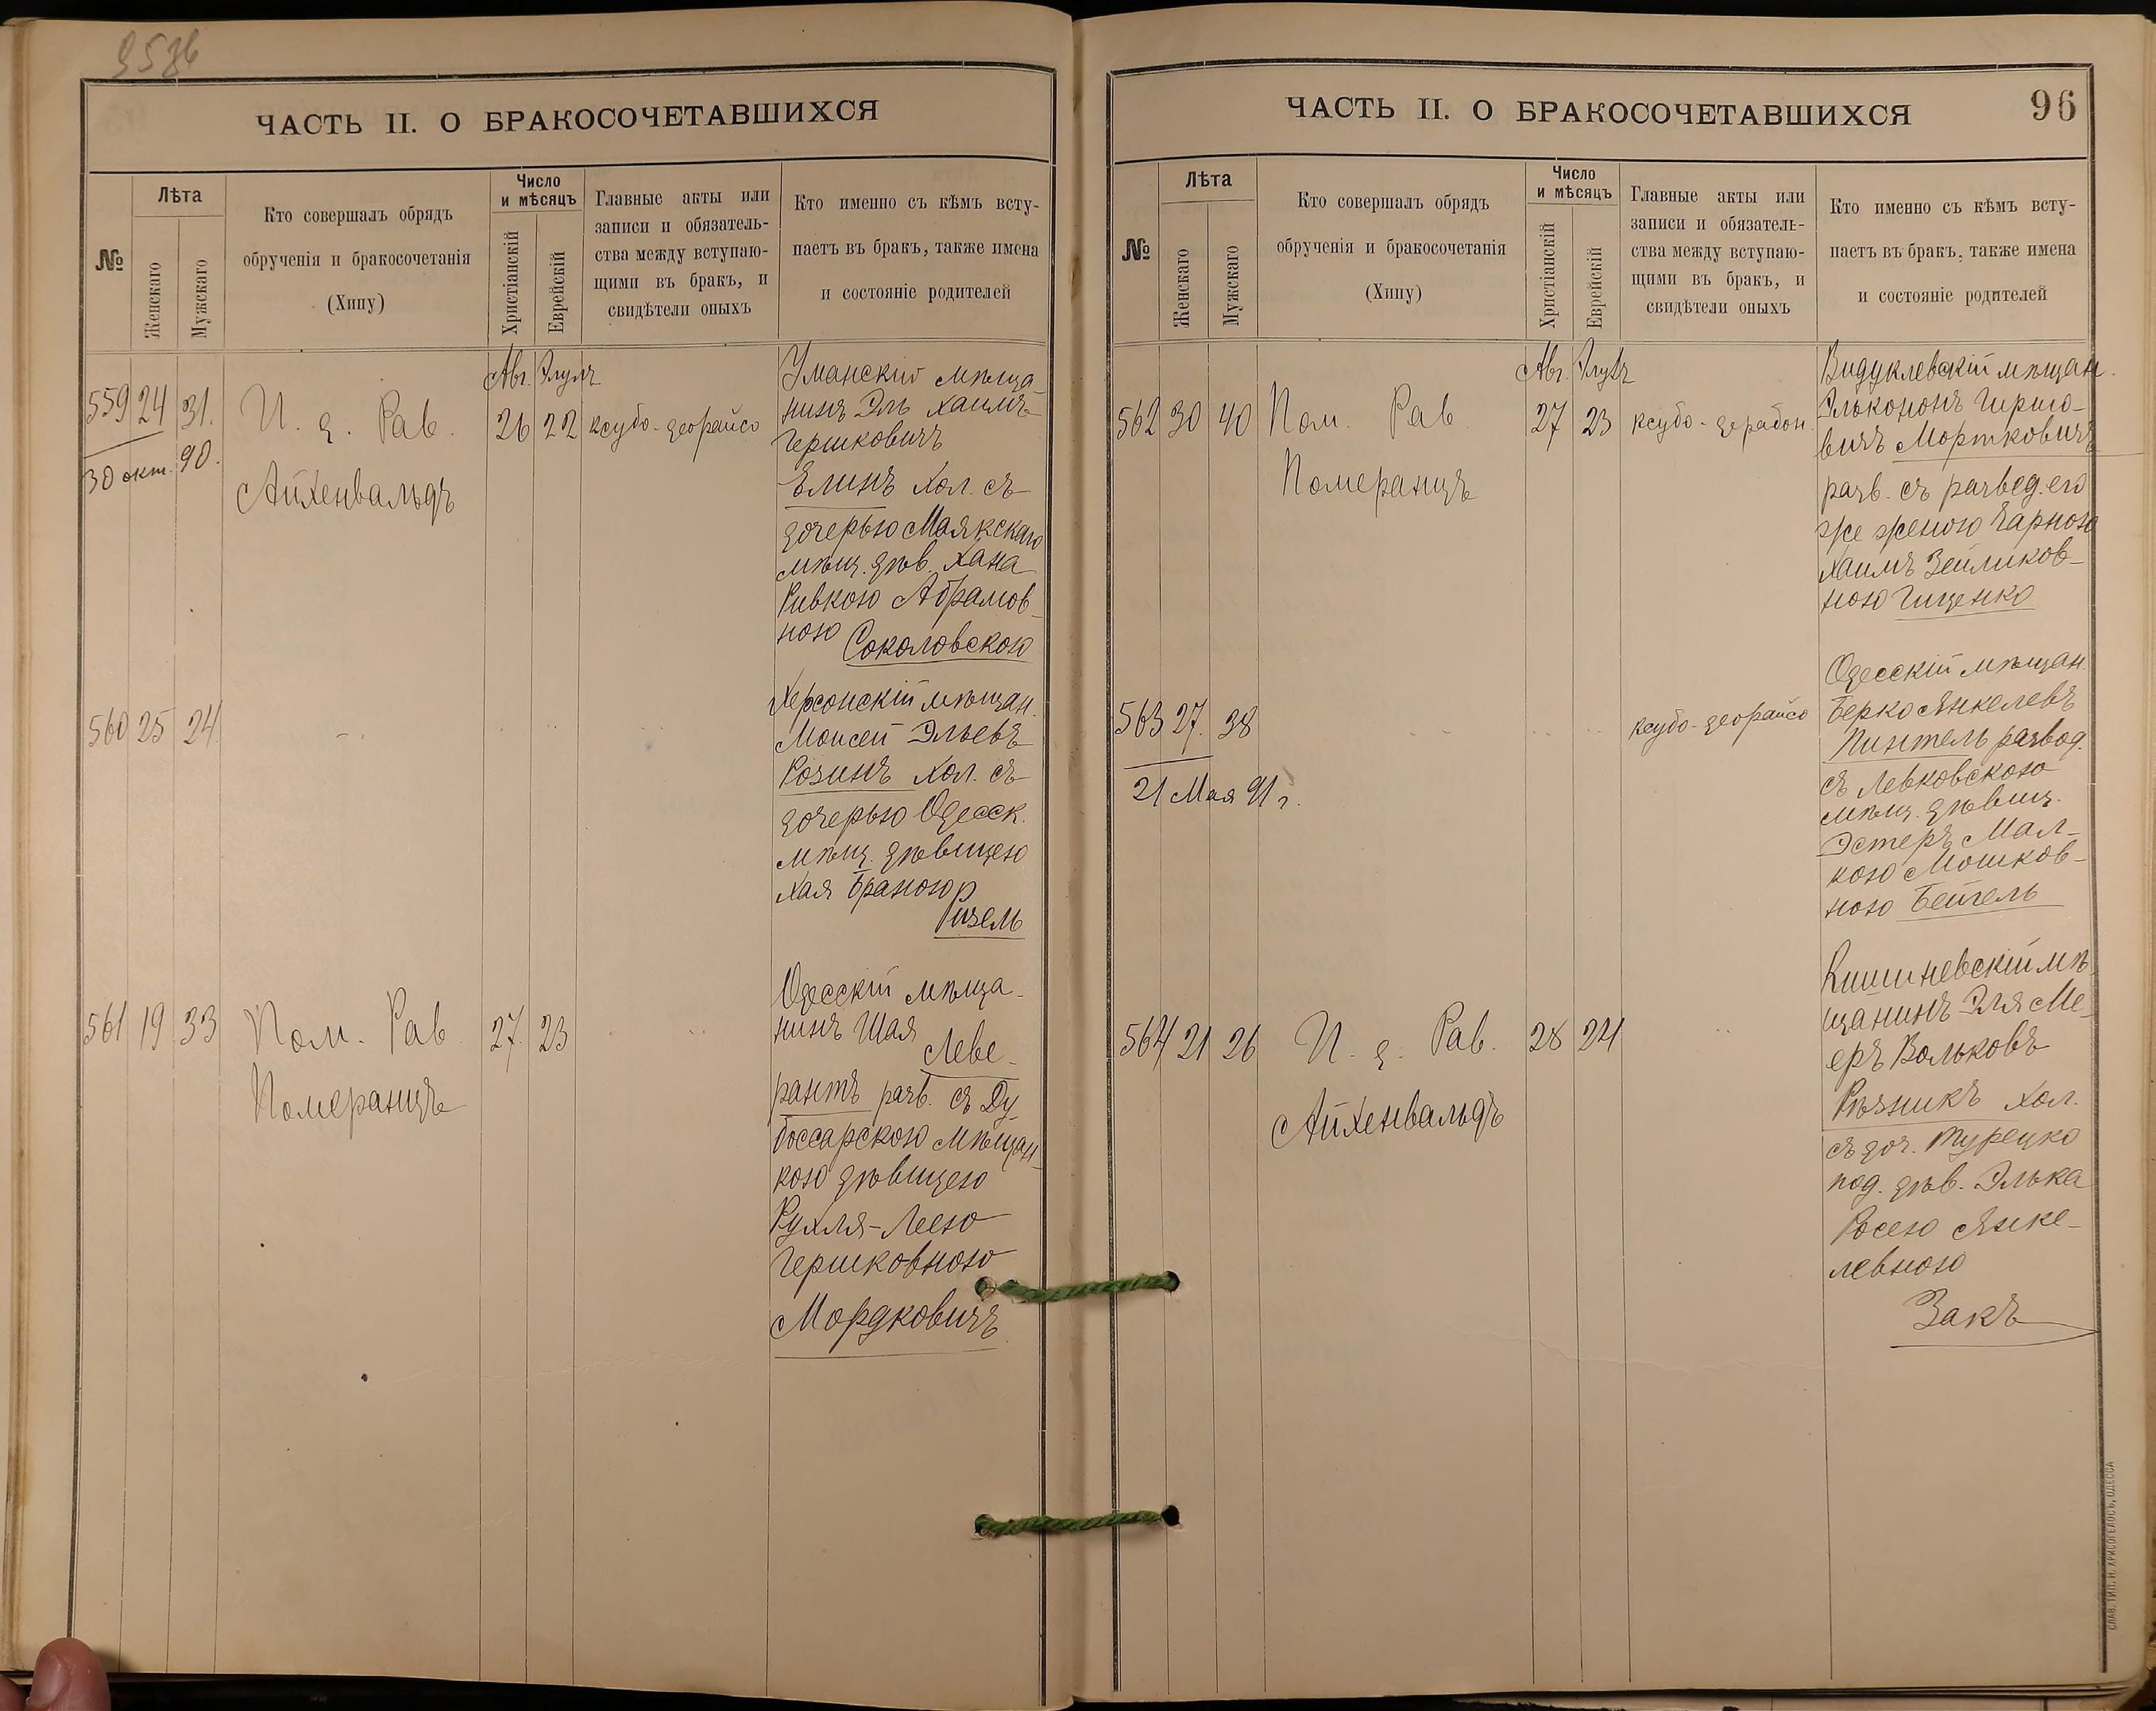 ЧАСТЬ II. О БРАКОСОЧЕТАВШИХСЯ
№
Лѣта
Женскаго
Мужскаго
Кто совершалъ обрядъ
обрученія и бракосочетанія
(Хипу)
Число
и мѣсяцъ
Христіанскій
Еврейскій
Главные акты или
записи и обязатель-
ства между вступаю-
щими въ бракъ, и
свидѣтели оныхъ
Кто именно съ кѣмъ всту-
паетъ въ бракъ, также имена
и состояніе родителей
Авг. Элулъ
559 24 31. И. д. Рав. 26 22 ксубо-деорайсо
30 окт. 90.
Айхенвальдъ
Уманскій мѣща-
нинъ Эль Хаимъ
Гершковичъ
Елинъ хол. съ
дочерью Маякскаго
мѣщ. дѣв. Хана
Ривкою Абрамов-
ною Соколовскою
560 25 24
Херсонскій мѣщан.
Моисей Эльевъ
Розинъ хол. съ
дочерью Одесск.
мѣщ. дѣвицею
Хая Браною
Ризель
561 19 33 Пом. Рав 27. 23
Померанцъ
Одесскій мѣща-
нинъ Шая Леве-
рантъ разв. съ Ду-
боссарскою мѣщан-
кою дѣвицею
Рухля-Леею
Гершковною
Мордковичъ
ЧАСТЬ II. О БРАКОСОЧЕТАВШИХСЯ
96
№
Лѣта
Женскаго
Мужскаго
Кто совершалъ обрядъ
обрученія и бракосочетанія
(Хипу)
Число
и мѣсяцъ
Христіанскій
Еврейскій
Главные акты или
записи и обязатель-
ства между вступаю-
щими въ бракъ, и
свидѣтели оныхъ
Кто именно съ кѣмъ всту-
паетъ въ бракъ, также имена
и состояніе родителей
Авг. Элулъ
562 30 40 Пом. Рав 27 23 ксубо-дерабон.
Померанцъ
Видуклевскій мѣщан.
Элькононъ Гиршо-
вичъ Мортковичъ
разв. съ развед. его
же женою Чарною
Хаимъ Зейликов-
ною Гищенко
563 27. 38 ксубо-деорайсо
21 Мая 91 г.
Одесскій мѣщан.
Берко Янкелевъ
Пинтель развод.
съ Левковскою
мѣщ. дѣвиц.
Эстеръ Мал-
кою Мошков-
ною Бейгель
564 21 26 И. д. Рав. 28 24
Айхенвальдъ
Кишиневскій мѣ-
щанинъ Эля Ме-
еръ Вольковъ
Рѣзникъ хол.
съ доч. Турецко
под. дѣв. Элька
Росею Янке-
левною
Закъ
СЛАВ. ТИП. Н. ХРИСОГЕЛОСЪ, ОДЕССА